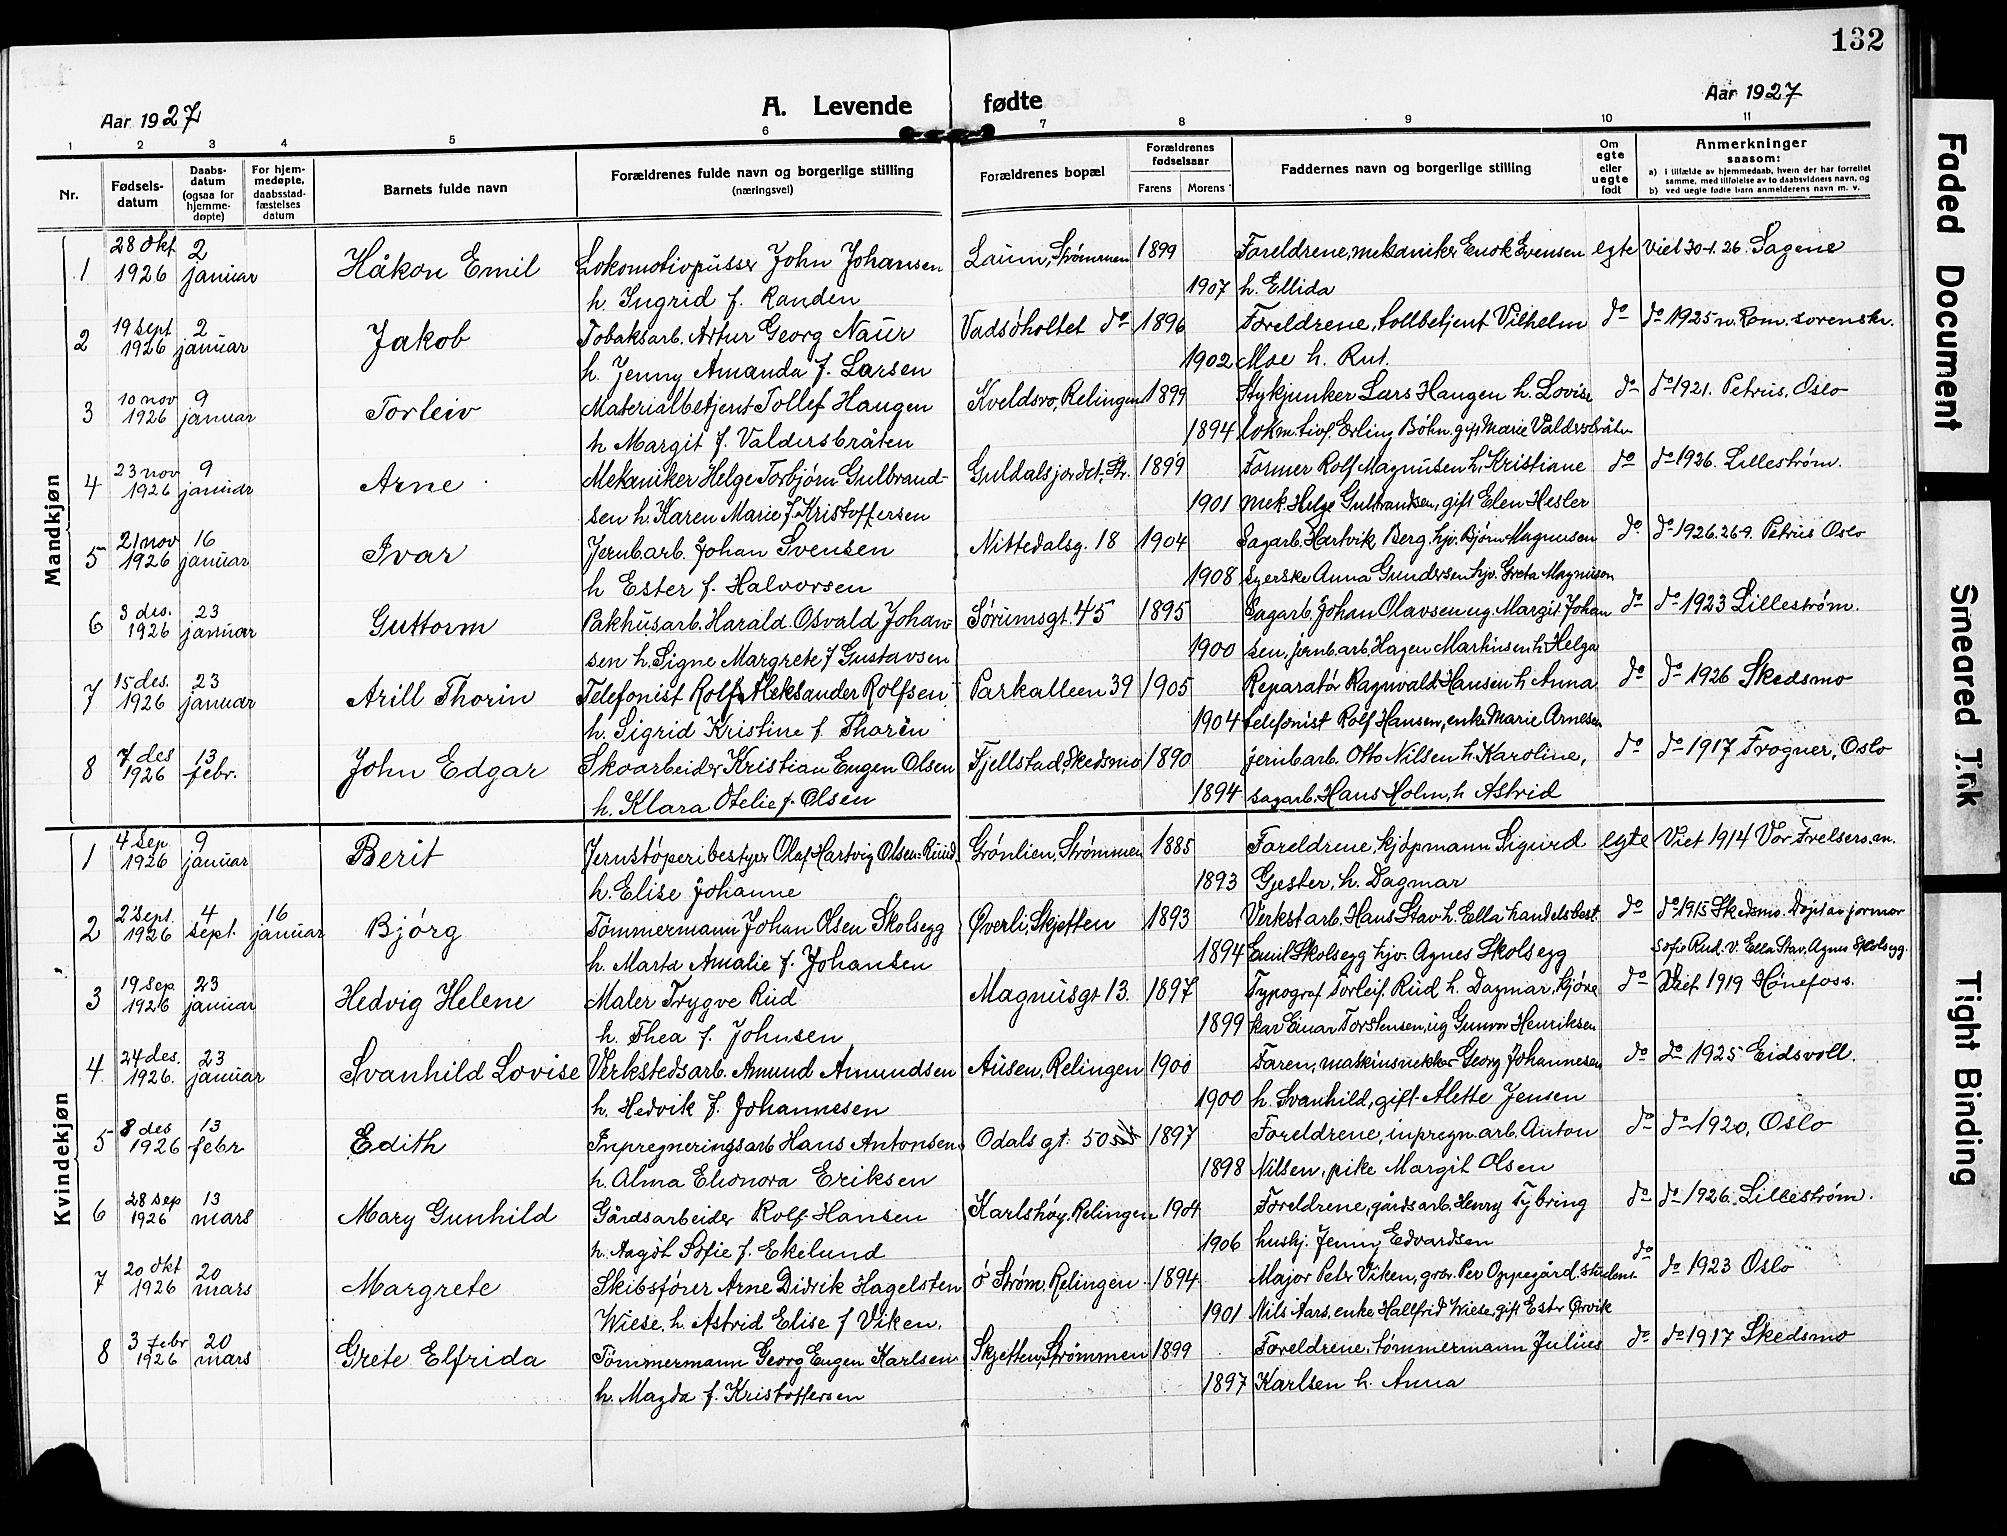 132
Aar 1927
A. Levende fødte
Aar 1927
1 2 3 4 5 6 7 8 9 10 11
Nr. | Fødsels-datum | Daabs-datum (ogsaa for hjemme-døpte) | For hjem-medøpte, daabsstad-fæstelses datum | Barnets fulde navn | Forældrenes fulde navn og borgerlige stilling (næringsvei) | Forældrenes bopæl | Forældrenes fødselsaar Farens Morens | Faddernes navn og borgerlige stilling | Om egte eller uegte født | Anmerkninger saasom: a) i tilfælde av hjemmedaab, hvem der har forrettet samme, med tilføielse av to daabsvidners navn, og b) ved uegte fødte barn anmelderens navn m. v.
Mandkjøn
1 | 28 okt 1926 | 2 januar | Håkon Emil | Lokomotivpusser John Johansen | Laum, Strømmen | 1899 | Foreldrene, mekaniker Enok Evensen | egte | Viet 30-1. 26. Sagene
h. Ingrid f. Randen | 1907 | h. Ellida
2 | 19 sept 1926 | 2 januar | Jakob | Tobaksarb. Artur Georg Naur | Vadsøholtet do | 1896 | Foreldrene, tollbetjent Vilhelm | do | do 1925 n. Rom. sorenskr.
h. Jenny Amanda f. Larsen | 1902 | Moe h. Rut.
3 | 10 nov 1926 | 9 januar | Torleiv | Materialbetjent Tollef Haugen | Kveldsro, Relingen | 1899 | Stykjunker Lars Haugen h. Lovise | do | do 1921. Petrus, Oslo
h Margit f. Valdersbråten | 1894 | lokm. Erling Bøhn. gift Marie Valdersbråten
4 | 23 nov 1926 | 9 januar | Arne | Mekaniker Helge Torbjørn Gulbrand- | Guldalsjordet, Str. | 1899 | Former Rolf Magnusen h. Kristiane | do | do 1926. Lillestrøm.
sen h. Karen Marie f. Kristoffersen | 1901 | mek. Helge Gulbrandsen, gift Elen Hesler
5 | 21 nov 1926 | 16 januar | Ivar | Jernbarb. Johan Svensen | Nittedalsg. 18 | 1904 | Sagarb. Hartvik Berg. hjv. Bjørn Magnusen | do | do 1926. 26-9. Petrus Oslo
h Ester f. Halvorsen | 1908 | syerske Anna Gundersen hjv. Greta Magnusen
6 | 3 des. 1926 | 23 januar | Guttorm | Pakhusarb. Harald Osvald Johan- | Sørumsgt. 45 | 1895 | Sagarb. Johan Olavsen ug. Margit Johan | do | do 1923 Lillestrøm.
sen h. Signe Margrete f Gustavsen | 1900 | sen, jernb.arb. Hagen Martinsen h. Helga
7 | 15 des. 1926 | 23 januar | Arill Thorin | Telefonist Rolf Aleksander Rolfsen | Parkalleen 39 | 1905 | Reparatør Ragnvald Hansen h Anna | do | do 1926 Skedsmo
h. Sigrid Kristine f. Thorèn | 1904 | telefonist Rolf Hansen, enke Marie Arnesen
8 | 7 des 1926 | 13 febr. | John Edgar | Skoarbeider Kristian Eugen Olsen | Fjellstad, Skedsmo | 1890 | jernbarb. Otto Nilsen h. Karoline, | do | do 1917 Frogner, Oslo
h. Klara Otelie f. Olsen | 1894 | sagarb. Hans Holm, h Astrid
Kvindekjøn
1 | 4 sep 1926 | 9 januar | Berit | Jernstøperibestyrer Olaf Hartvig Olsen-Ruud | Grønlien, Strømmen | 1885 | Foreldrene, kjøpmann Sigurd | egte | Viet 1914 Vor Frelsers. m.
h. Elise Johanne | 1893 | Gjester, h. Dagmar
2 | 2 sept. 1926 | 4 sept. | 16 januar | Bjørg | Tømmermann Johan Olsen Skolsegg | Øverli, Skjetten | 1893 | Verkstarb. Hans Stav h. Ella handelsbest. | do | do 1915 Skedsmo. Døpt av jormor
h. Marta Amalie f. Johansen | 1894 | Emil Skolsegg hjv. Agnes Skolsegg | Sofie Rud. V. Ella Stav, Agnes Skolsegg.
3 | 19 sep 1926 | 23 januar | Hedvig Helene | Maler Trygve Rud | Magnusgt 13. | 1897 | Typograf Torleif. Rud h. Dagmar, kjøre | do | Viet 1919 Hønefoss.
h. Thea f. Johnsen | 1899 | kar Einar Torstensen, ug Gunvor Henriksen
4 | 24 des. 1926. | 23 januar | Svanhild Lovise | Verkstedsarb. Amund Amundsen | Ausen, Relingen | 1900 | Faren, maskinsnekker Georg Johannesen | do | do 1925 Eidsvoll.
h. Hedvik f. Johannesen | 1900 | h. Svanhild, gift Alette Jensen
5 | 8 des 1926 | 13 febr | Edith | Inpregneringsarb Hans Antonsen | Odals gt. 50 | 1897 | Foreldrene, inpregn. arb. Anton | do | do 1920, Oslo
h. Alma Elionora Eriksen | 1898 | Nilsen, pike Margit Olsen
6 | 28 sep 1926 | 13 mars | Mary Gunhild | Gårdsarbeider Rolf Hansen | Karlshøy. Relingen | 1904 | Foreldrene, gårdsarb. Henry Tybring | do | do 1926. Lillestrøm.
h. Aagot Sofie f. Ekelund | 1906 | hushj. Jenny Edvardsen
7 | 20 okt 1926 | 20 mars | Margrete | Skibsfører Arne Didrik Hagelsten | ø Strøm. Relingen | 1894 | Major Peter Viken, grv. Per Oppegård. student | do | do 1923 Oslo
Wiese. h. Astrid Elise f Viken. | 1901 | Nils Aars, enke Hallfrid Wiese, gift Ester Ørvik
8 | 3 febr 1926 | 20 mars | Grete Elfrida | Tømmermann Georg Eugen Karlsen | Skjetten, Strømmen | 1899 | Foreldrene, tømmermann Julius | do | do 1917 Skedsmo
h. Magda f. Kristoffersen | 1897 | Karlsen h. Anna
Faded Document
Smeared Ink
Tight Binding